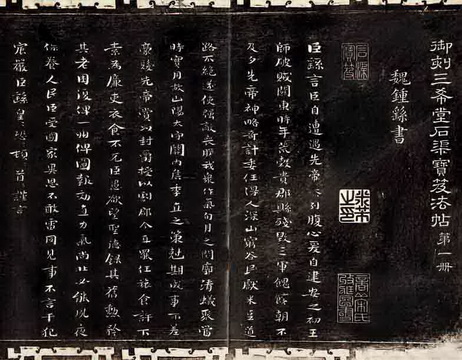 御刻三希堂石渠寶笈法帖 第一册
魏鍾繇書
石渠寶笈
臣繇言臣自遭遇先帝忝列腹心爰自建安之初王
師破賊關東時年荒穀貴郡縣殘毀三軍餽饟朝不
及夕先帝神略奇計委任得人深山窮谷民獻米豆道
路不絕遂使強敵喪膽我衆作氣旬月之間廓清蟻聚當
時實用故山陽太守關內侯季直之策剋期成事不差
豪髮先帝賞以封爵授以劇郡今直罷任旅食許下
素為廉吏衣食不充臣愚欲望聖德錄其舊勳矜
其老困復俾一州俾圖報効直力氣尚壯必能夙夜
保養人民臣受國家異恩不敢雷同見事不言干犯
宸嚴臣繇皇恐頓首謹言